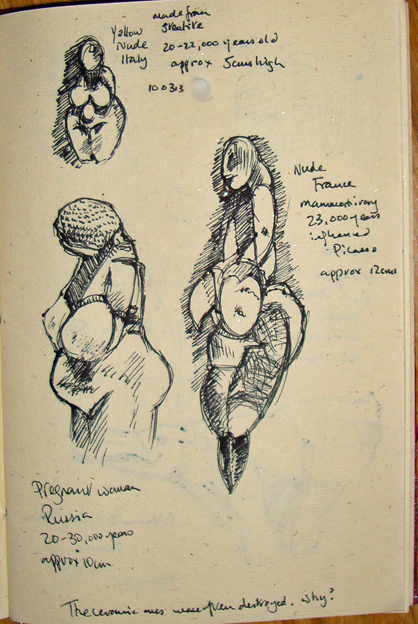 Yellow
Nude
Italy
made from
Steatite
20-22,000 years old
approx 5cms high
Nude
France
mammoth ivory
23,000 years
influenced
Picasso
approx 12cms
Pregnant woman
Russia
20-30,000 years
approx 10cm
The ceramic ones were often destroyed. Why?